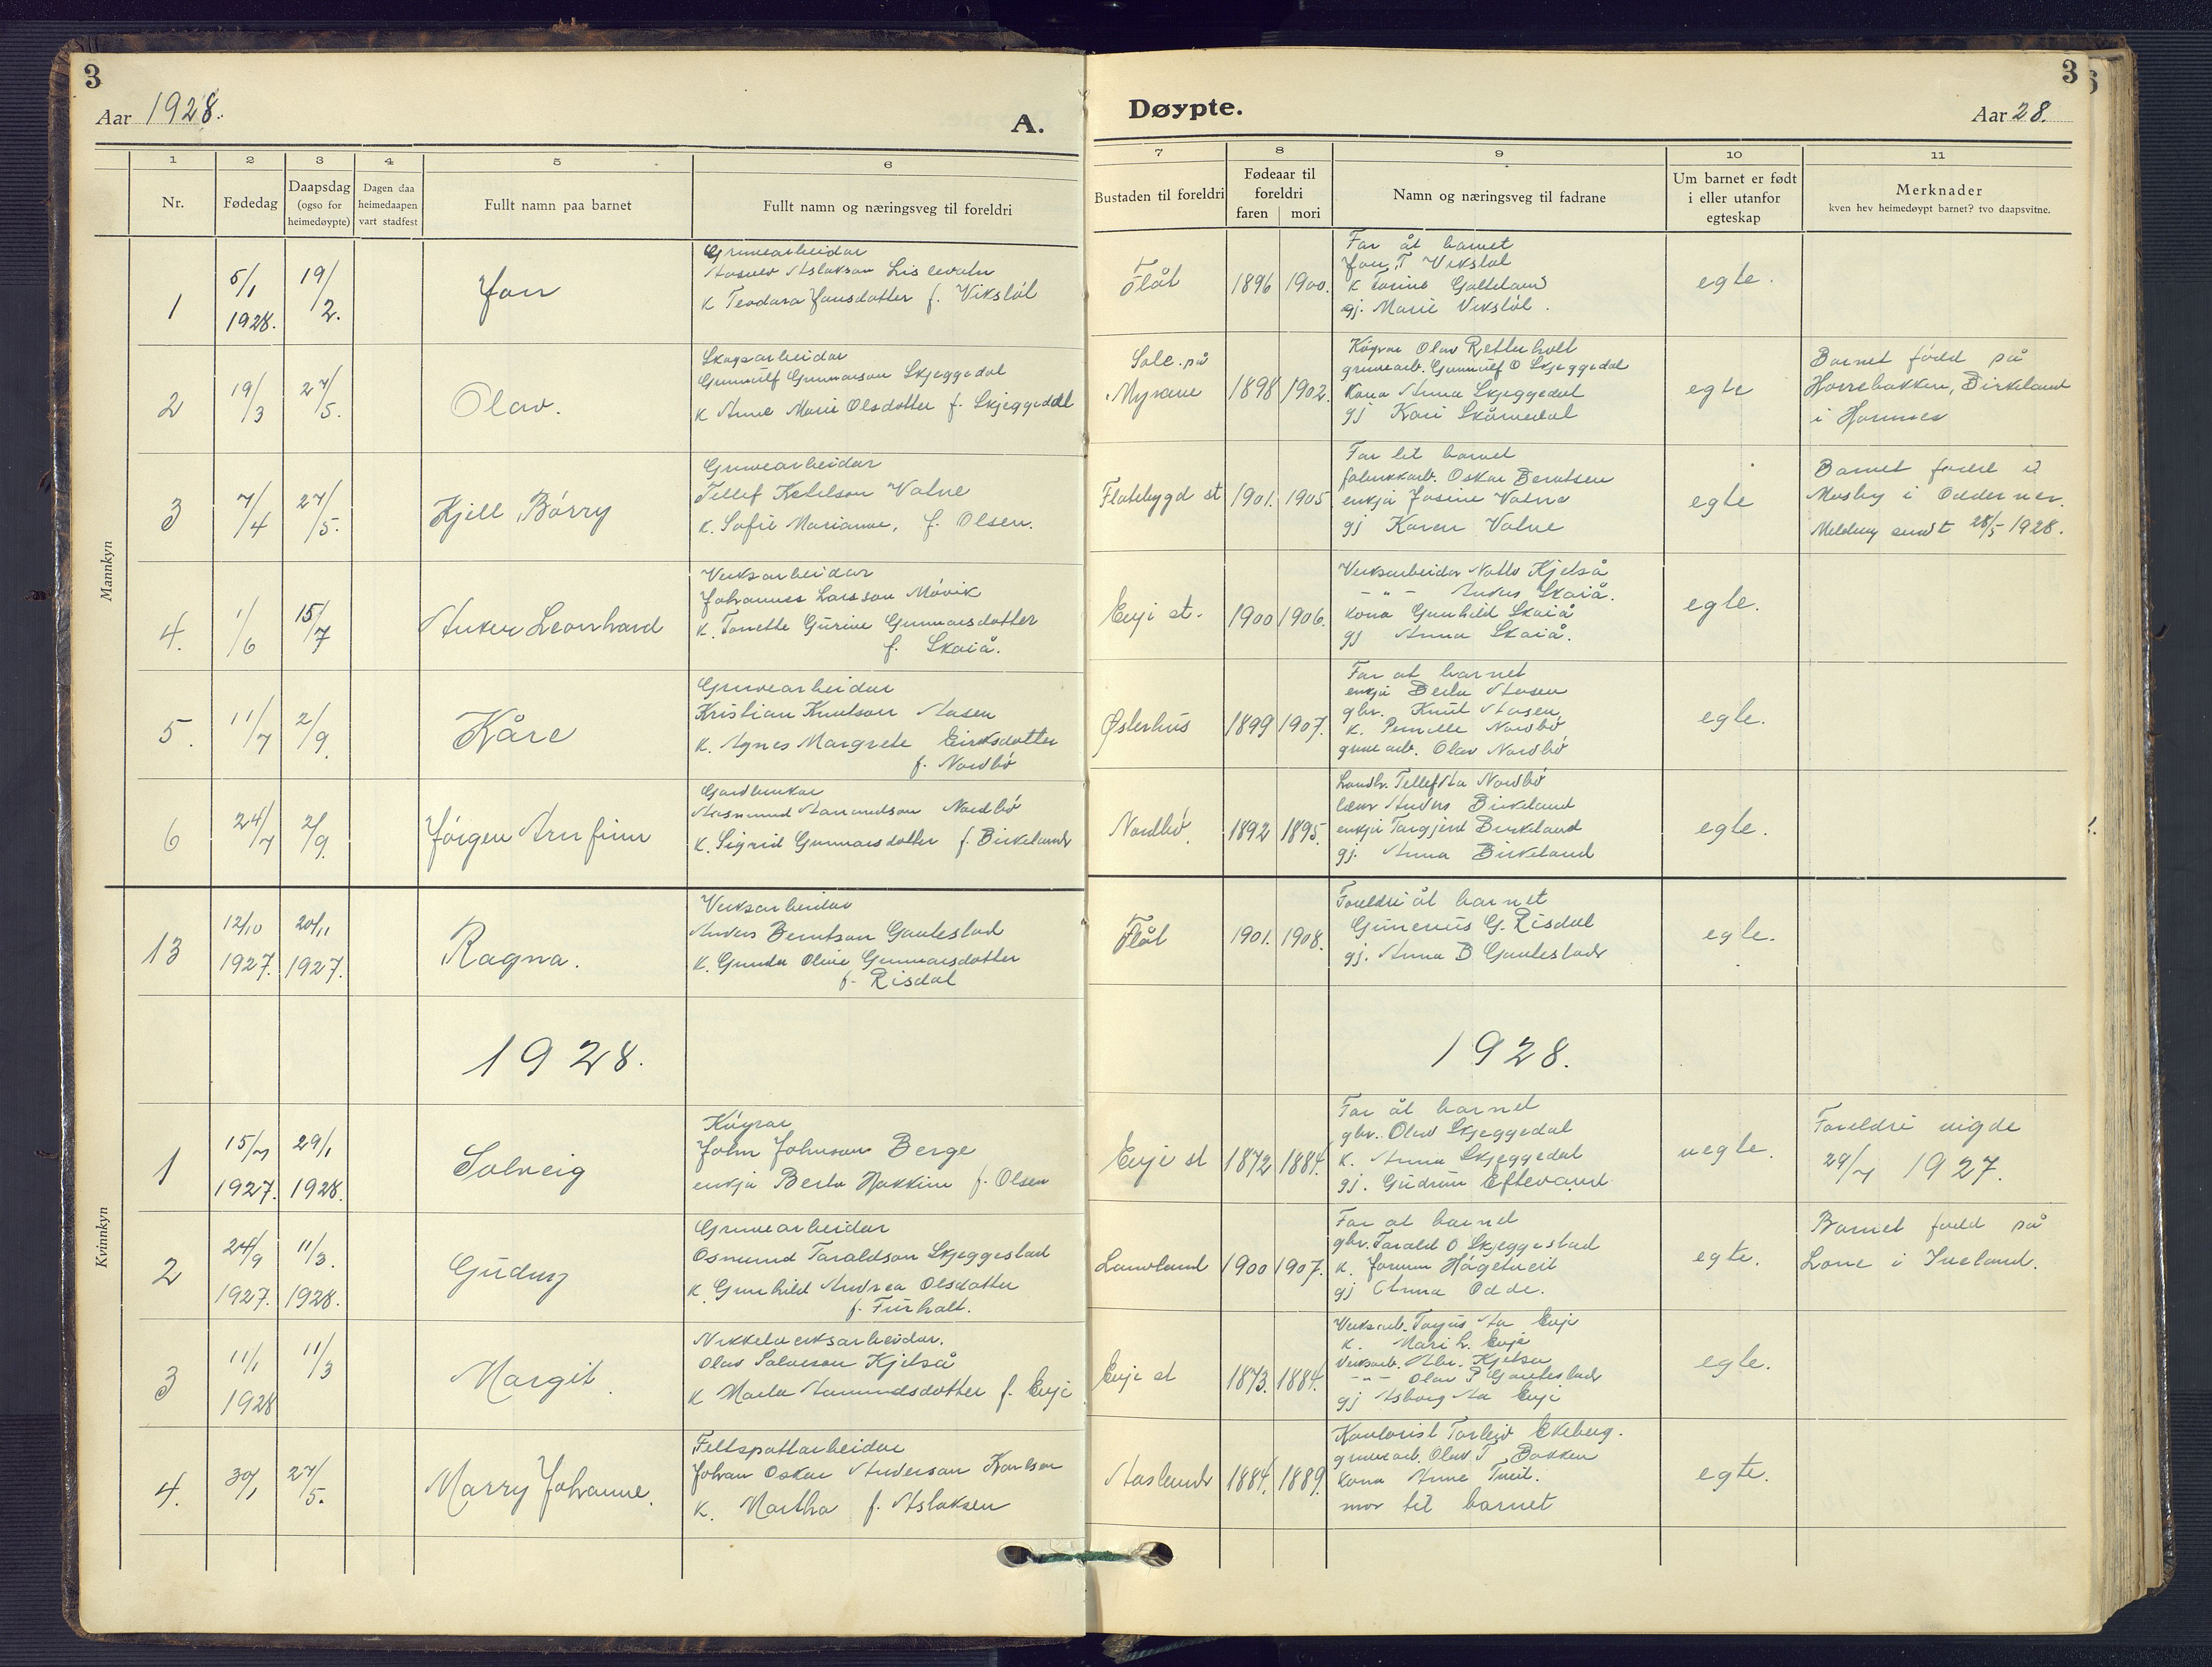 3
Aar 1928.
A.
Døypte.
3
Aar 28.
1 2 3 4 5 6 7 8 9 10 11
Nr.
Fødedag
Daapsdag
(ogso for
heimedøypte)
Dagen daa
heimedaapen
vart stadfest
Fullt namn paa barnet
Fullt namn og næringsveg til foreldri
Bustaden til foreldri
Fødeaar til
foreldri
faren mori
Namn og næringsveg til fadrane
Um barnet er født
i eller utanfor
egteskap
Merknader
kven hev heimedøypt barnet? tvo daapsvitne.
Mannkyn
1
5/1
1928.
19/2.
Jon
Gruvearbeidar
Aslakson Lislevatn
K Teodora Jonsdotter f. Vikstøl
Flåt
1896 1900.
Far åt barnet
Jon T Vikstøl
K Torine Galteland
gj. Marie Vikstøl.
egte.
2
19/3
27/5.
Olav.
Skogsarbeidar
Gunnulf Gunnarson Skjeggedal
K Anne Marie Olsdotter f. Skjeggedal
Sole på
Myrane
1898 1902.
Køyrar Olav Retterholt
gruvearb. Gunnulf O Skjeggedal
Kona Anna Skjeggedal
gj Kari Skåmedal
egte
Barnet fødd på
Horrebakken, Birkeland
i Hornnes
3
7/4
27/5.
Kjell Bórry
Gruvearbeidar
Tellef Ketelson Vatne
K. Sofie Marianne, f. Olsen.
Flatebygd st
1901. 1905
Far til barnet
fabrikkarb. Oskar Berntsen
enkja Josine Vatne
gj Karen Vatne
egte
Barnet fødd i
Mosby i Oddernes.
Melding sendt 28/5 1928.
4.
1/6
15/7
Anker Leonhard
Verksarbeidar
Johannes Larsson Móvik
K. Tonette Gúrine Gunnarsdotter
f. Skaiå.
Evje st.
1900 1906.
Verksarbeidar Notto Kjetså
- " - Anders Skaiå.
Kona Gunhild Skaiå
gj Anna Skaiå.
egte.
5.
11/7
2/9.
Kåre
Gruvearbeidar
Kristian Knutson Aasen
K. Agnes Margrete Eiriksdotter
f. Nordbó
Østerhus
1899 1907.
Far at barnet
enkja Berta Aasen
gbr. Knut Aasen
K. Pernille Nordbó
gruvearb. Olav Nordbó
egte.
6
24/7
2/9.
Jórgen Arnfinn
Gardbrukar
Aasmund Aanundson Nordbó
K. Sigrid Gunnarsdotter f. Birkeland
Nordbó
1892 1895.
Landbr. Tellef Aa Nordbó
lærar Anders Birkeland
enkja Targjerd Birkeland
gj. Anna Birkeland
egte.
Kvinnkyn
13
12/10
1927.
20/11
1927.
Ragna.
Verksarbeidar
Anders Berntson Gautestad
K. Gunda Olive Gunnarsdotter
f. Risdal
Flåt
1901. 1908.
Foreldri åt barnet
Gunerius G. Risdal
gj. Anna B Gautestad
egte.
1928.
1928.
1
15/7
1927.
29/1
1928.
Solveig
Kóyrar
John Johnson Berge
enkja Berta Hakkim f. Olsen
Evje st
1872 1884.
Far åt barnet
gbr. Olav Skjeggedal
K. Anna Skjeggedal
gj. Gudrun Eftevand
uegte.
Foreldri vigde
29/7 1927.
2
24/9
1927.
11/3.
1928.
Gudny
Gruvearbeidar
Osmund Taraldson Skjeggestad
K. Gunhild Andrea Olsdotter
f. Furholt.
Landland
1900 1907.
Far at barnet
gbr. Tarald O Skjeggestad
K. Jorunn Hógetveit
gj Anna Odde.
egte.
Barnet fødd på
Lone i Iveland.
3
11/1
1928
11/3
Margit.
Nikkelverksarbeidar.
Olav Salveson Kjetså
K Marta Aamundsdotter f. Evje
Evje st
1873. 1884.
Verksarb. Targus Aa Evje
K. Mari L. Evje
Verksarb. Abr. Kjetså
- " - Olav P Gautestad
gj Asborg Aa Evje
egte.
4.
30/1
27/5.
Marry Johanne.
Feltspatarbeidar
Johan Oskar Anderson Karlsen
K. Martha f. Aslaksen
Aasland
1884. 1889.
Kontorist Torleiv Ekeberg.
gruvearb. Olav T Bakken
Kona Anne Tveit.
mor til barnet
egte.